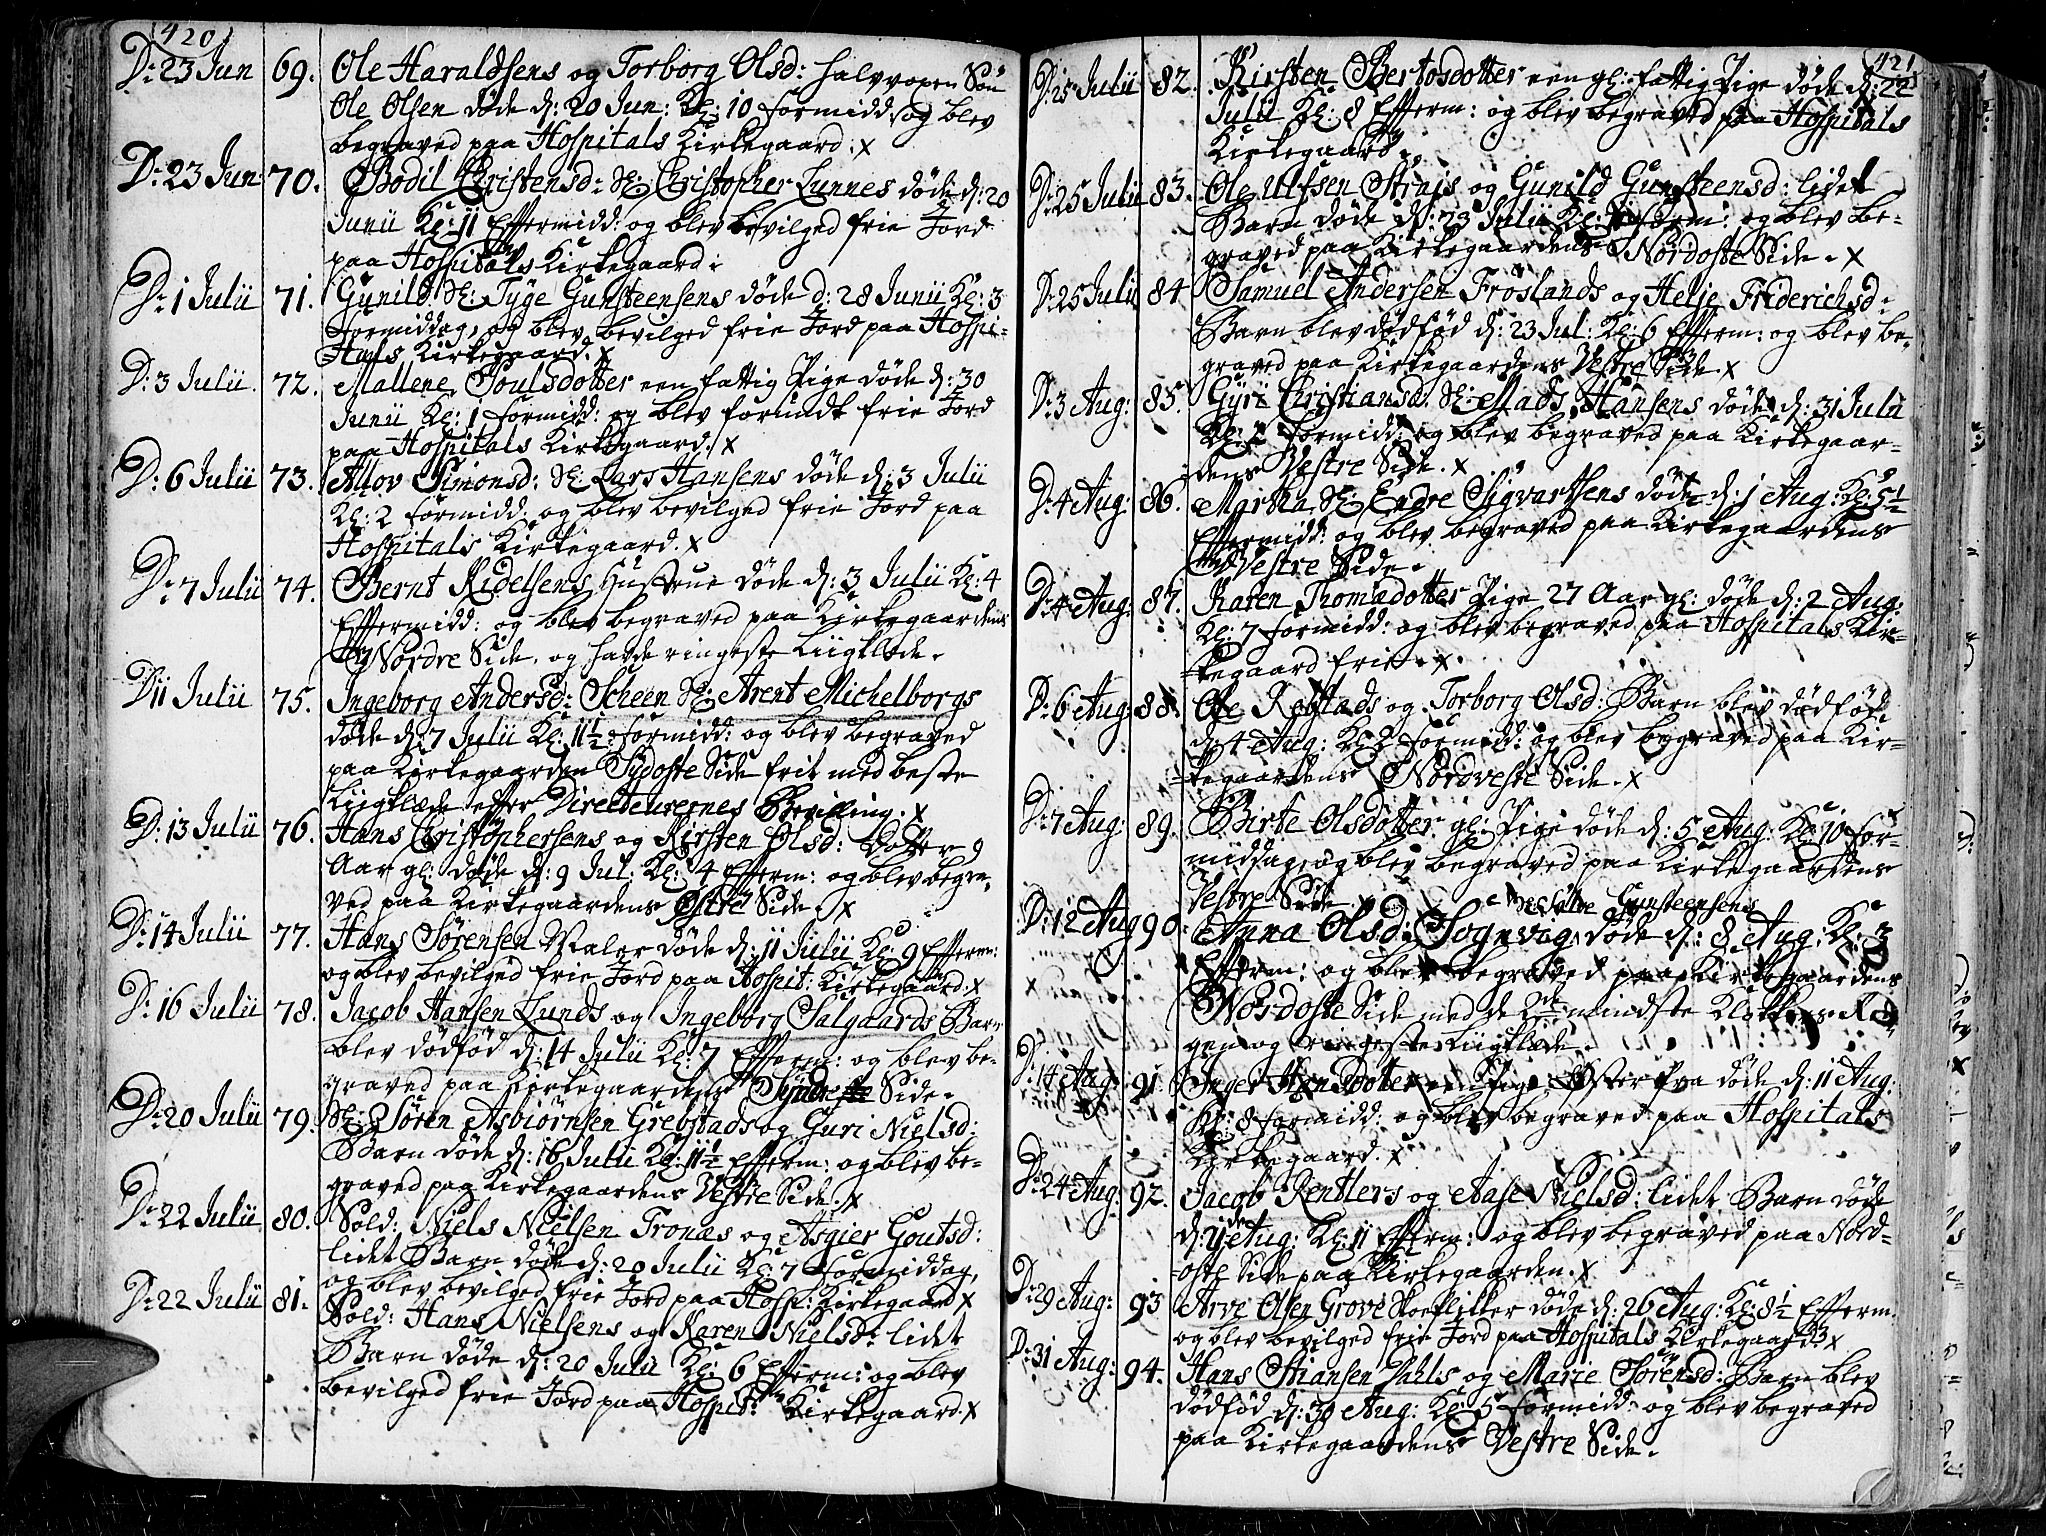 420
D: 23 Jun 69. Ole Haraldsens og Torborg Olsd: halvvoxen Søn
Ole Olsen døde d: 20 Jun: Kl: 10 Formidd: og blev
begraved paa Hospitals Kirkegaard. x
D: 23 Jun 70. Bodil Christensd: Sl: Christopher Lunnes døde d: 20
Junii Kl: 11 Eftermidd: og blev bevilged frie Jord
paa Hospitals Kirkegaard:
D: 1 Julii 71. Gunild Sl: Tyge Gunsteensens døde d: 28 Junii Kl: 3
Formiddag, og blev bevilged frie Jord paa Hospi-
tals Kirkegaard. x
D: 3 Julii 72. Mallene Poulsdotter een fattig Pige døde d: 30
Junii Kl: 1 Formidd: og blev forundt frie Jord
paa Hospitals Kirkegaard. x
D: 6 Julii 73. Allov Simonsd: Sl: Lars Hansens døde d: 3 Julii
Kl: 2 Formidd: og blev bevilged frie Jord paa
Hospitals Kirkegaard. x
D: 7 Julii 74. Bernt Ridelsens Hustrue døde d: 3 Julii Kl: 4
Eftermidd: og blev begraved paa Kirkegaardens
Nordre Side, og havde ringeste Liigklæde.
D: 11 Julii 75. Ingeborg Andersd: Scheen Sl: Arent Michelborgs
døde d: 7 Julii Kl: 11½ Formidd: og blev begraved
paa Kirkegaarden Sydoste Side frit med beste
Liigklæde efter Directeurernes Bevilling. x
D: 13 Julii 76. Hans Christophersens og Kirsten Olsd: Dotter 9
Aar gl: døde d: 9 Jul: Kl: 4 Efterm: og blev begra-
ved paa Kirkegaardens Østre Side. x
D: 14 Julii 77. Hans Sørensen Maler døde d: 11 Julii Kl: 9 Efterm:
og blev bevilged frie Jord paa Hospit: Kirkegaard. x
D: 16 Julii 78. Jacob Hansen Lunds og Ingeborg Salgaards Barn
blev dødfød d: 14 Julii Kl: 7 Efterm: og blev be-
graved paa Kirkegaardens Syndre Side.
D: 20 Julii 79. Sl: Søren Asbiørnsen Grebstads og Guri Nielsd:
Barn døde d: 16 Julii Kl: 11½ Efterm: og blev be-
graved paa Kirkegaardens Vestre Side. x
D: 22 Julii 80. Sold: Niels Nielsen Tronæs og Asgier Goutsd:
lidet Barn døde d: 20 Julii Kl: 7 Formiddag,
og blev bevilged frie Jord paa Hosp: Kirkegaard x
D: 22 Julii 81. Sold: Hans Nielsens og Karen Nielsd: lidet
Barn døde d: 20 Julii Kl: 6 Efterm: og blev
bevilged frie Jord paa Hospit: Kirkegaard. x
421
D: 25 Julii 82. Kirsten Bertosdotter een gl: fattig Pige døde d: 22
Julii Kl: 8 Efterm: og blev begraved paa Hospitals
Kirkegaard.
D: 25 Julii 83. Ole Ulfsen Strais og Gunild Gunsteensd: lidet
Barn døde d: 23 Julii Kl: Form: og blev be-
graved paa Kirkegaardens Nordoste Side. x
D: 25 Julii 84 Samuel Andersen Frøslands og Helje Friderichsd:
Barn blev dødfød d: 23 Jul: Kl: 6 Efterm: og blev be-
graved paa Kirkegaardens Vestre Side. x
D: 3 Aug: 85. Gyri Christiansd. Sl: Mads Hansens døde d: 31 Julii
Kl: Formidd: og blev begraved paa Kirkegaar-
dens Vestre Side. x
D: 4 Aug: 86. Martha Sl: Endre Sigvartsens døde d: 1 Aug: Kl: 5½
Eftermidd: og blev begraved paa Kirkegaardens
Vestre Side.
D: 4 Aug: 87. Karen Thomædotter Pige 27 Aar gl: døde d: 2 Aug:
Kl: 7 Formidd: og blev begraved paa Hospitals Kir-
kegaard frie. x
D: 6 Aug: 88. Ole Robstads og Torborg Olsd: Barn blev dødfød
d: 4 Aug: Kl: 2 Formidd: og blev begraved paa Kir-
kegaardens Nordveste Side. x
D: 7 Aug: 89. Birte Olsdotter gl: Pige døde d: 5 Aug: Kl: 10 For-
middag, og blev begraved paa Kirkegaardens
Vestre Side.
Gunsteensens
D: 12 Aug 90. Anna Olsd: Sognvig døde d: 8 Aug: Kl: 3
Efterm: og blev begraved paa Kirkegaardens
Nordoste Side med de 2de mindste Klokkers Rin-
gen og ringeste Liigklæde.
D: 14 Aug: 91. Inger Hansdotter een Pige Øster fra døde d: 11 Aug:
Kl: 8 Formidd: og blev begraved paa Hospitals
Kirkegaard. x
D: 24 Aug: 92. Jacob Rentlers og Aase Nielsd: lidet Barn døde
d: 21de Aug: Kl: 11 Efterm: og blev begraved paa Nord-
oste Side paa Kirkegaarden. x
D: 29 Aug: 93 Arve Olsen Grove Skoeflikker døde d: 26 Aug: Kl: 8½ Efterm.
og blev bevilged frie Jord paa Hospitals Kirkegaard. x
D: 31 Aug: 94. Hans Stiansen Dahls og Marie Sørensd: Barn blev
dødfød d: 30 Aug: Kl: 5 Formidd: og blev begraved
paa Kirkegaardens Vestre Side.